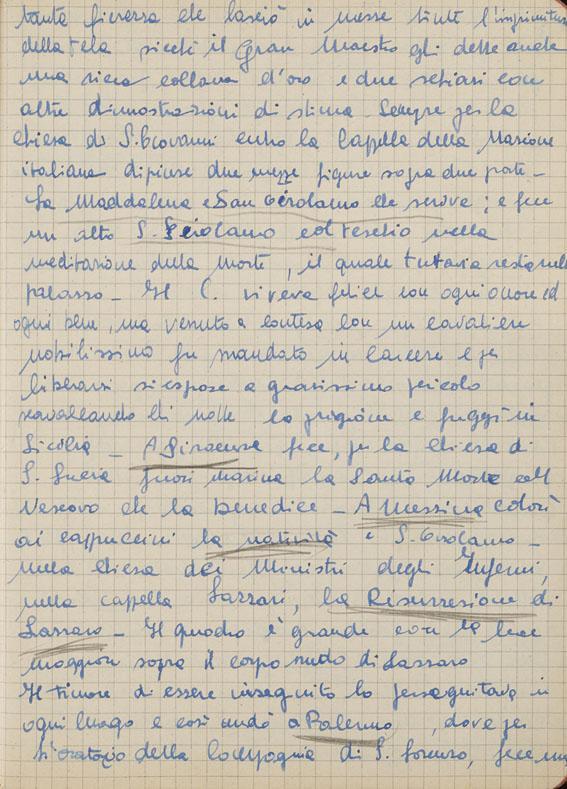 tanta fierezza che lasciò in mezze tinte l'imprimitura
della tela sicché il Gran Maestro gli dette anche
una ricca collana d'oro e due schiavi con
altre dimostrazioni di stima. Sempre per la
chiesa di S. Giovanni entro la Cappella della Nazione
italiana dipinse due mezze figure sopra due porte –
La Maddalena e San Girolamo che scrive ; e fece
un altro S. Girolamo col teschio nella
meditazione della morte, il quale tuttavia resta nel
palazzo – Il C. viveva felice con ogni onore ed
ogni bene, ma venuto a contesa con un cavaliere
nobilissimo fu mandato in carcere e per
liberarsi si espose a gravissimo pericolo
scavalcando di notte la prigione e fuggì in
Sicilia – A Siracusa fece, per la chiesa di
S. Lucia fuori marina la Santa Morta col
Vescovo che la benedice – A Messina colorì
ai cappuccini la natività e S. Girolamo –
nella chiesa dei Ministri degli Infermi,
nella cappella Lazzari, la Risurrezione di
Lazzaro – Il quadro è grande con la luce
maggior sopra il corpo nudo di Lazzaro
Il timore di essere inseguito lo perseguitava in
ogni luogo e così andò a Palermo, dove per
l'oratorio della Compagnia di S. Lorenzo, fece una